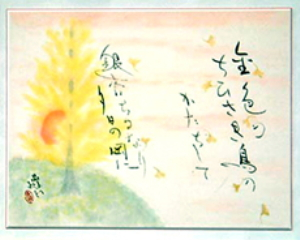 金色の
ちひさき鳥の
かたちして
銀杏ちるなり
夕日の岡に